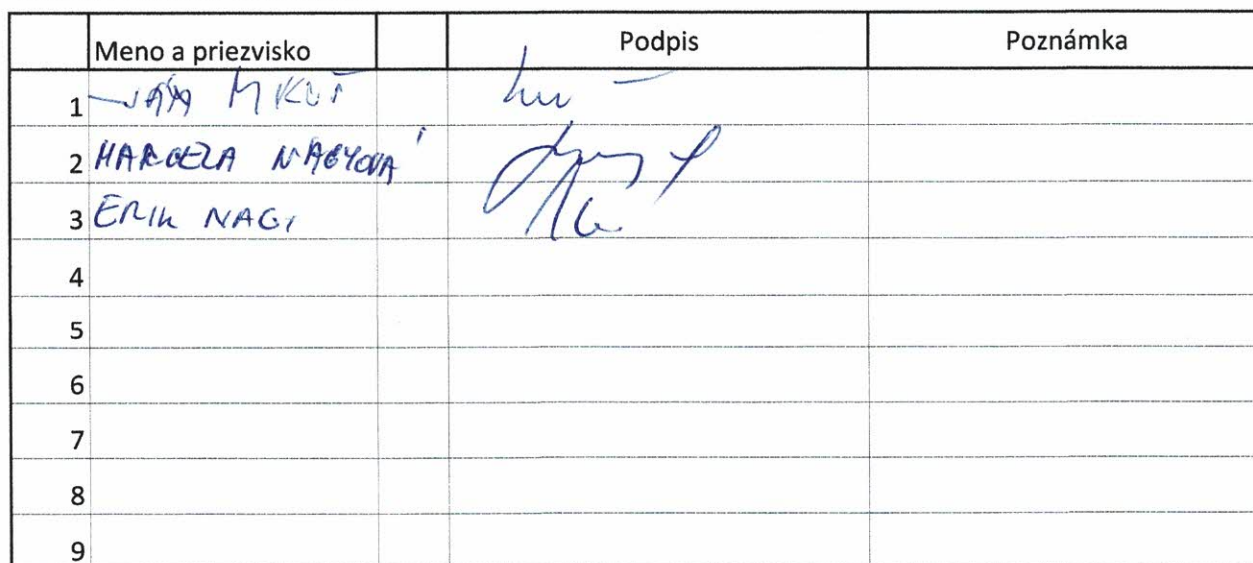 Meno a priezvisko Podpis Poznámka
1
2 MARCELA NAGYOVÁ
3 ERIK NAGY
4
5
6
7
8
9